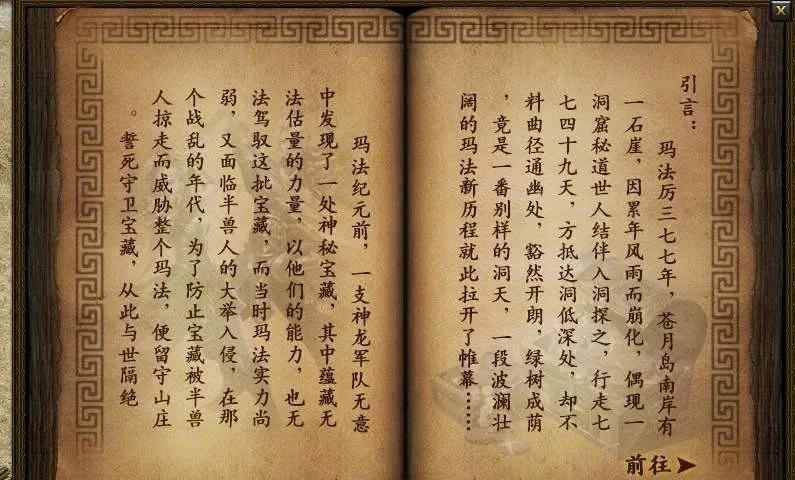 引言：
玛法厉三七七年，苍月岛南岸有
一石崖，因累年风雨而崩化，偶现一
洞窟秘道世人结伴入洞探之，行走七
七四十九天，方抵达洞低深处，却不
料曲径通幽处，豁然开朗，绿树成荫
，竟是一番别样的洞天，一段波澜壮
阔的玛法新历程就此拉开了帷幕……
玛法纪元前，一支神龙军队无意
中发现了一处神秘宝藏，其中蕴藏无
法估量的力量，以他们的能力，也无
法驾驭这批宝藏，而当时玛法实力尚
弱，又面临半兽人的大举入侵，在那
个战乱的年代，为了防止宝藏被半兽
人掠走而威胁整个玛法，便留守山庄
。誓死守卫宝藏，从此与世隔绝
前往